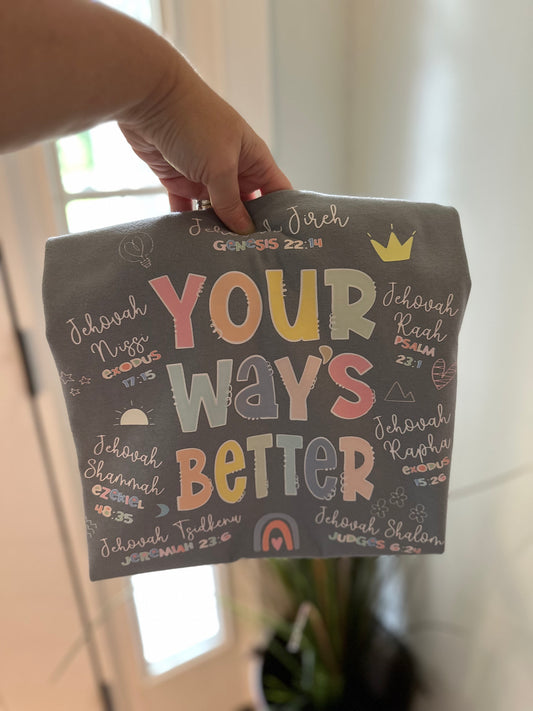 Jireh
Genesis 22:14
Jehovah
Nissi
Exodus
17:15
Your
Way's
Better
Jehovah
Raah
Psalm
23:1
Jehovah
Shammah
Ezekiel
48:35
Jehovah
Rapha
Exodus
15:26
Jehovah Tsidkenu
Jeremiah 23:6
Jehovah Shalom
Judges 6:24